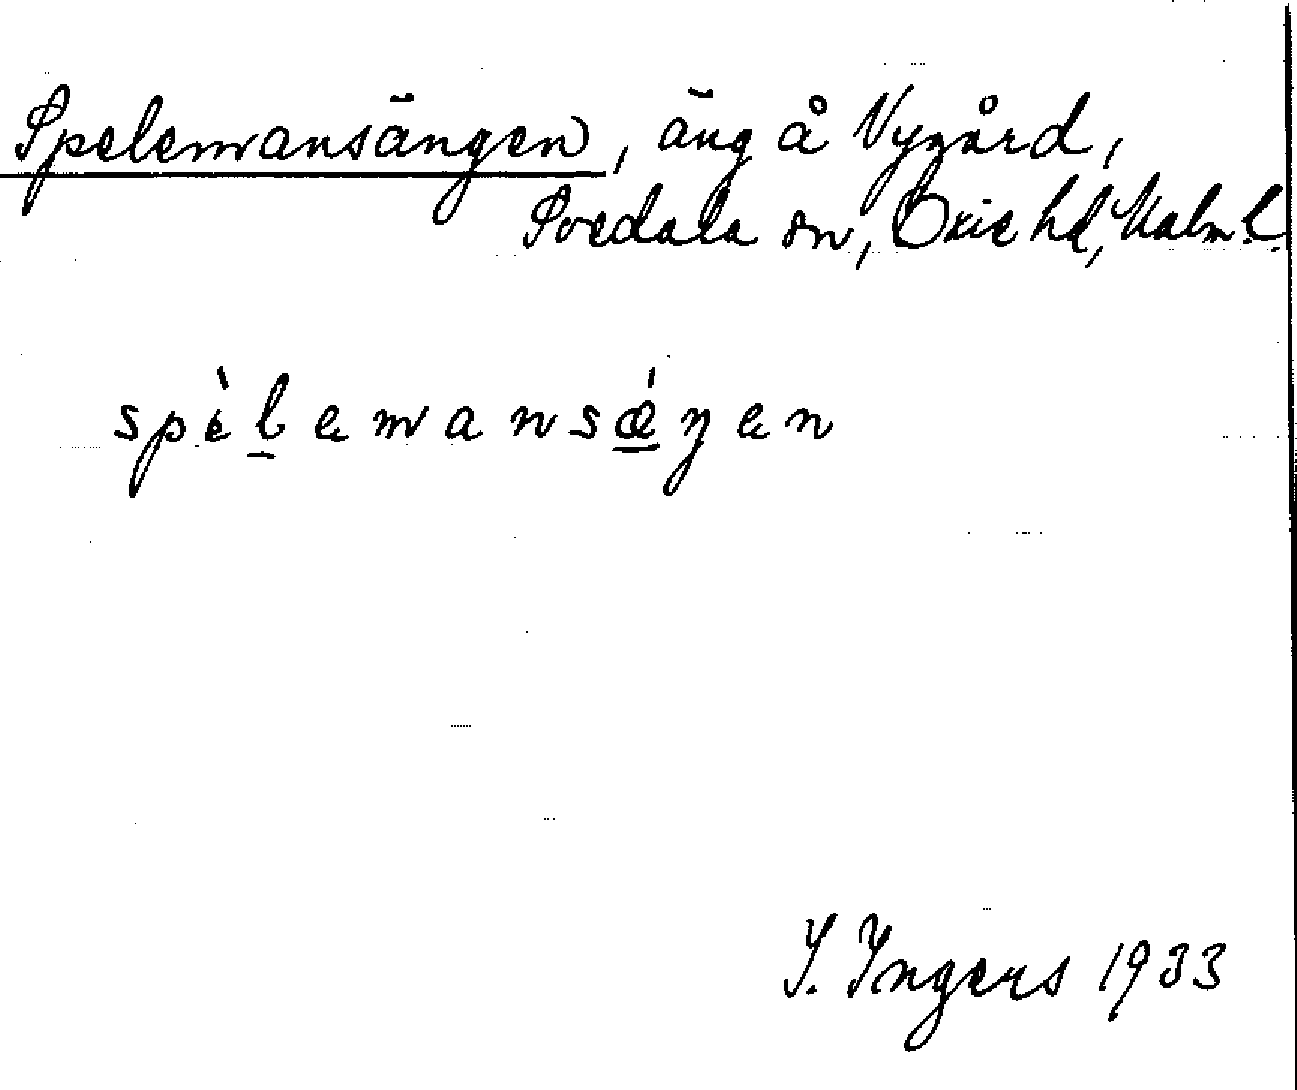 Spelemansängen, äng å Vygård,
Svedala sn, Oxie hd, Malm.l.
spèlemansǽŋen
I. Ingers 1933